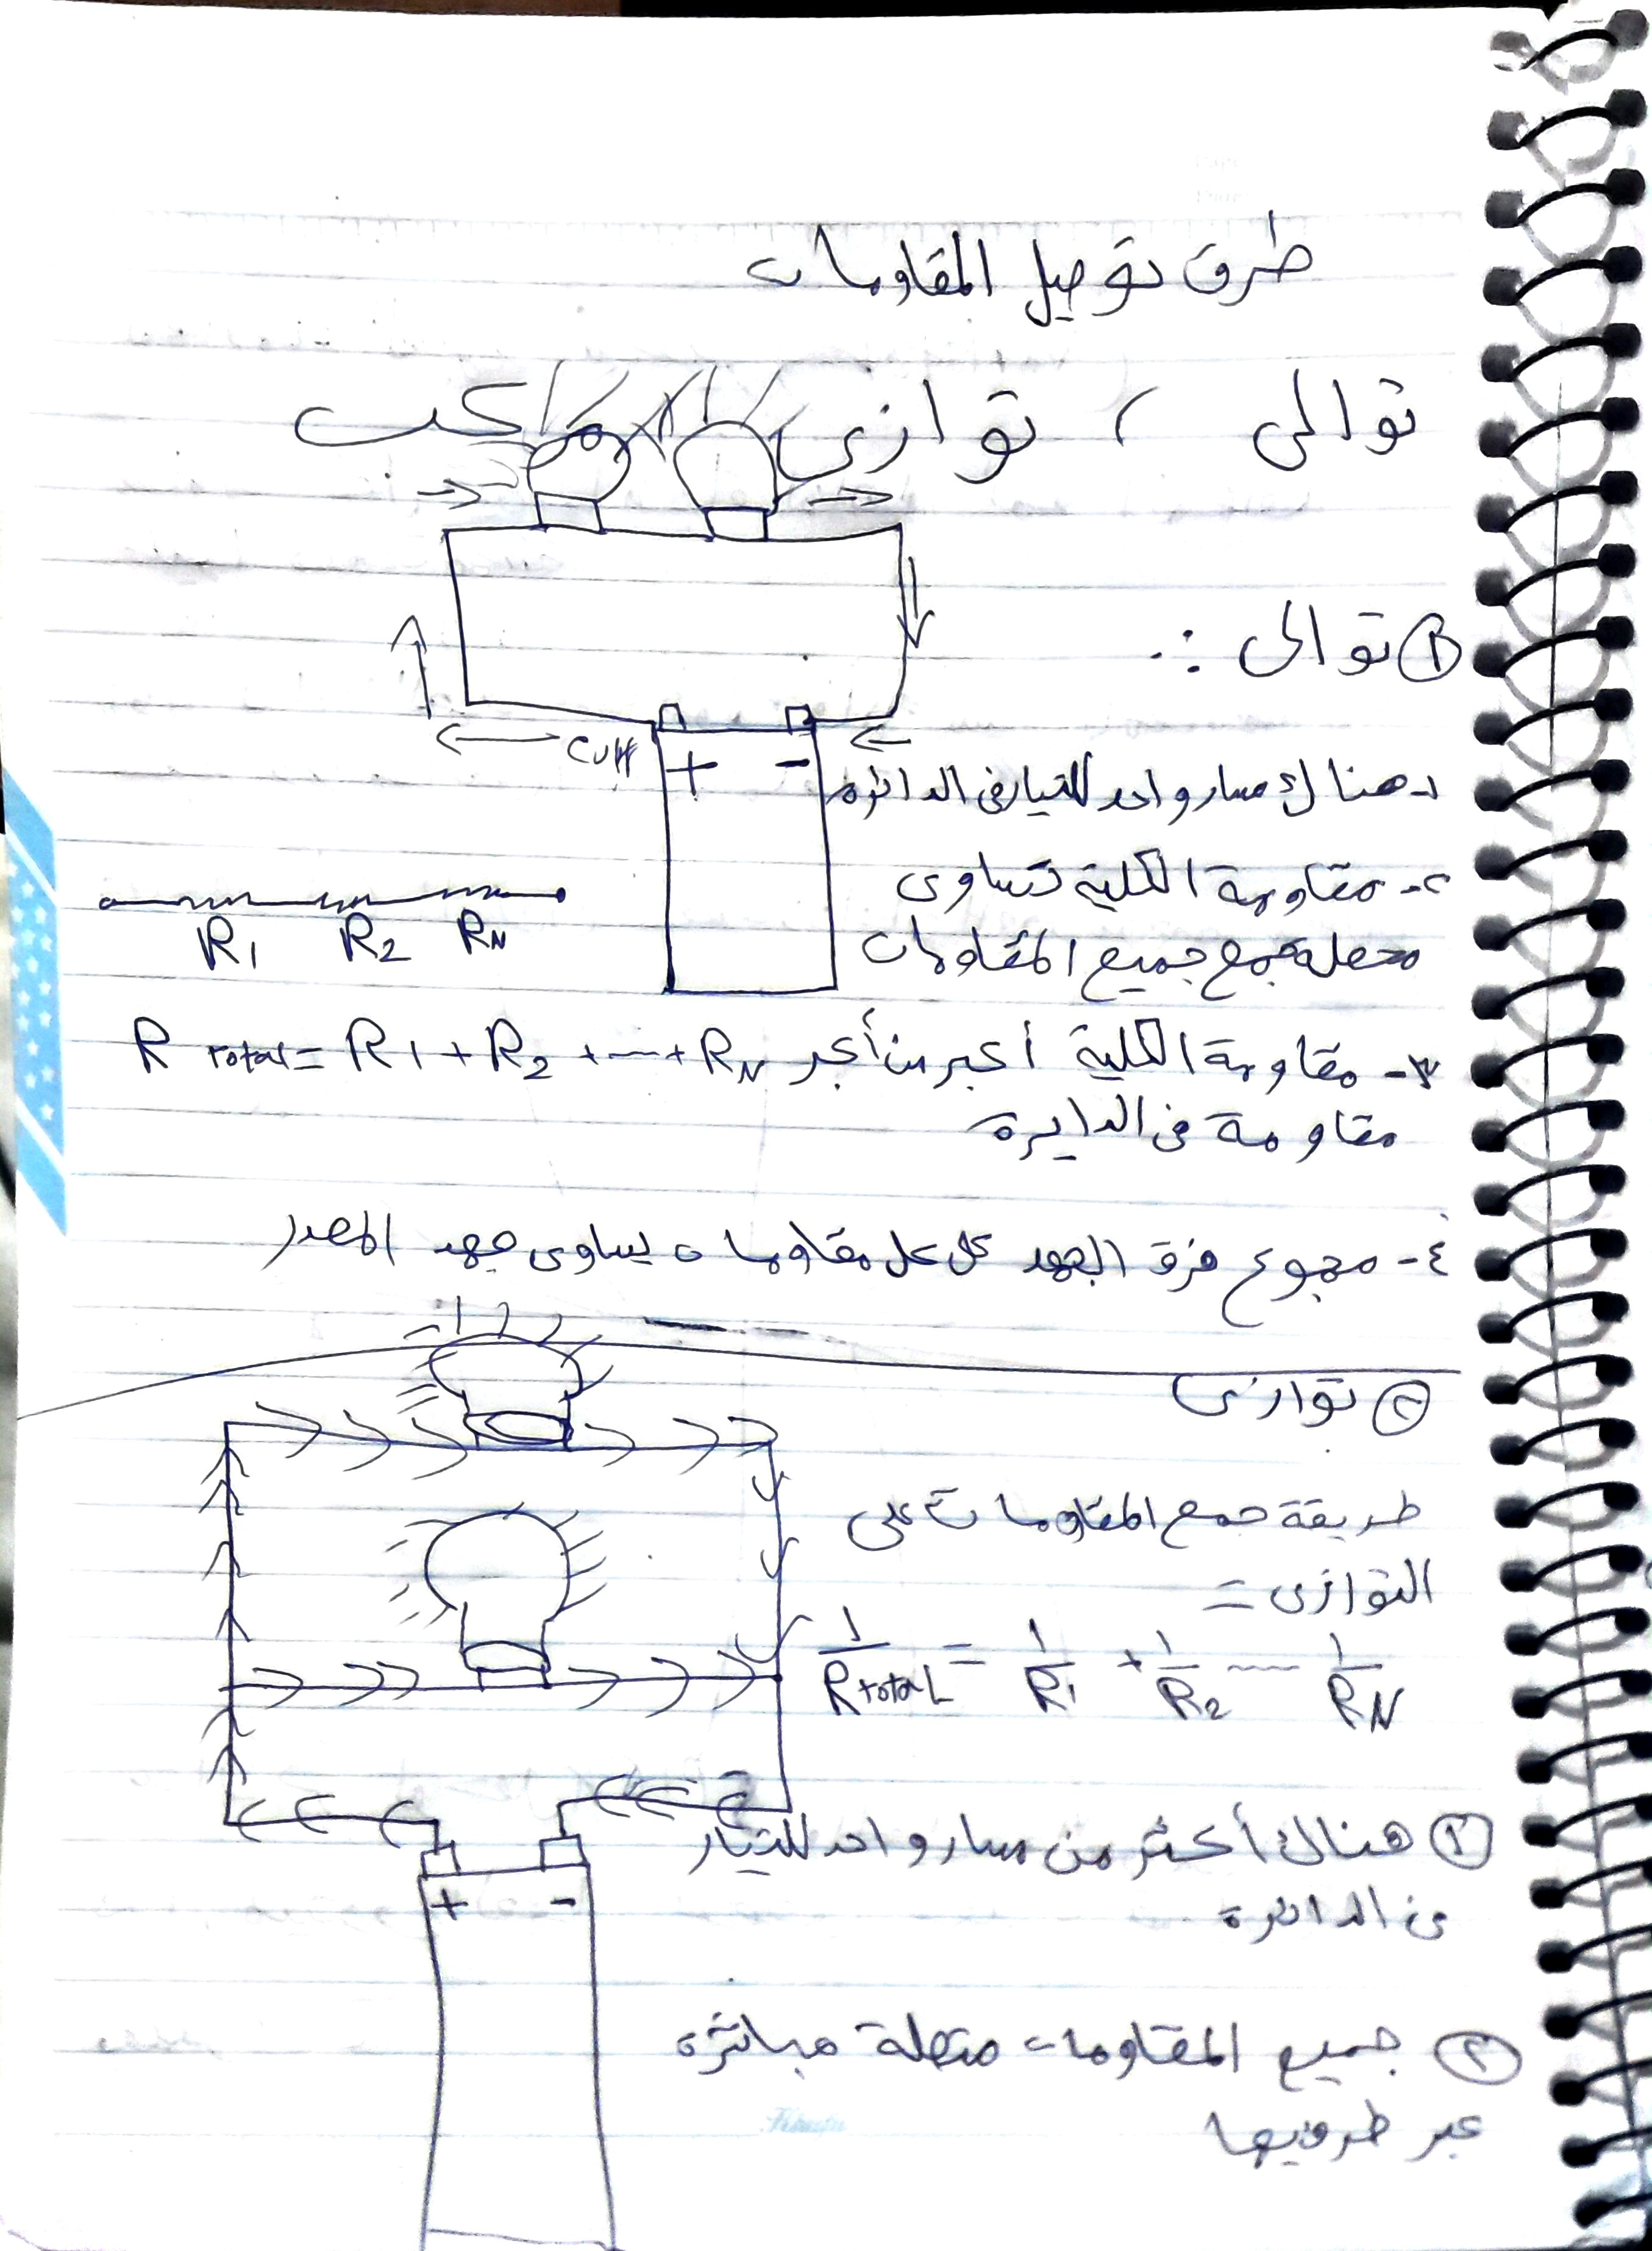 طرق توصيل المقاومات
توالى ، توازى مركب
① توالى :.
١- هناك مسار واحد للتيار فى الدائره
+ -
curr
٢- مقاومة الكلية تساوى
محصلة جمع جميع المقاومات
R1 R2 RN
٣- مقاومة الكلية أكبر من أكبر
R total = R1 + R2 + ... + RN
مقاومة فى الدايرة
٤- مجموع فرق الجهد كل مقاومات يساوى جهد المصدر
② توازى
طريقة جمع المقاومات على
التوازى =
1/R total = 1/R1 + 1/R2 ~~ 1/RN
① هناك أكثر من مسار واحد للتيار
فى الدائرة
+ -
② جميع المقاومات متصلة مباشره
عبر طرفيها